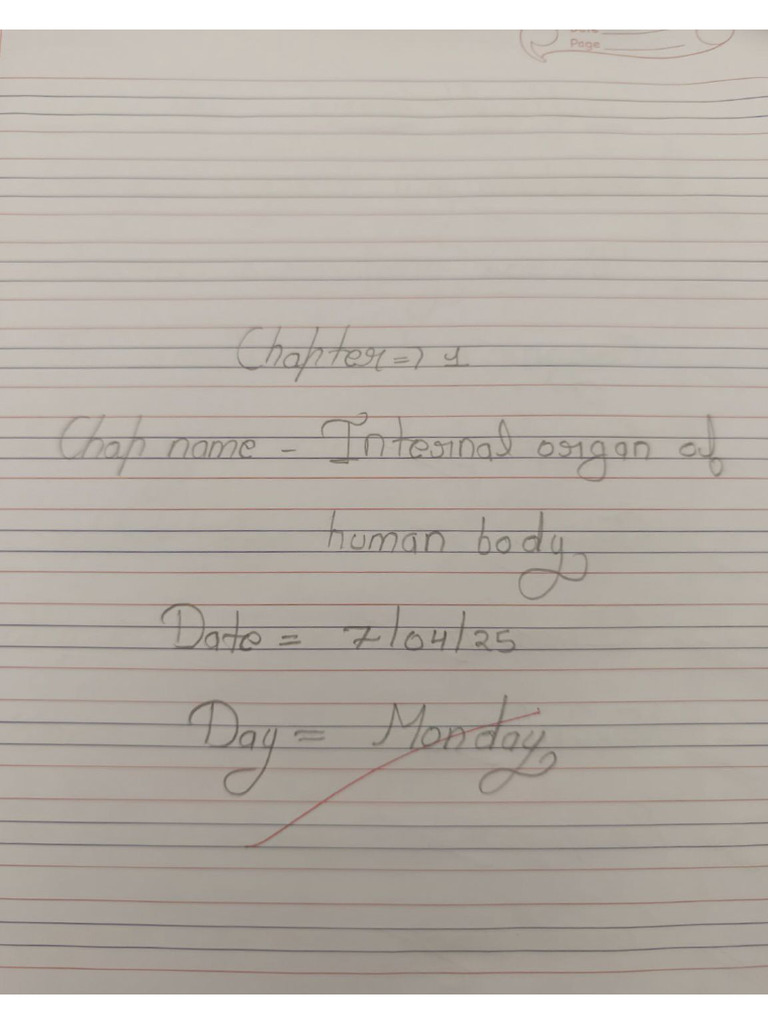 Page
Chapter => 1
Chap name - Internal organ of
human body
Date = 7/04/25
Day = Monday